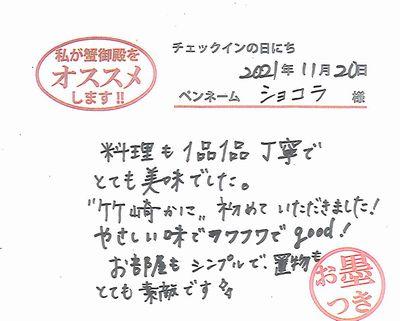 私が蟹御殿を
オススメ
します!!
チェックインの日にち
2021年11月20日
ペンネーム ショコラ 様
料理も1品1品丁寧で
とても美味でした。
"竹崎かに" 初めていただきました!
やさしい味でフワフワでgood!
お部屋もシンプルで、置物も
とても素敵です
お墨
つき